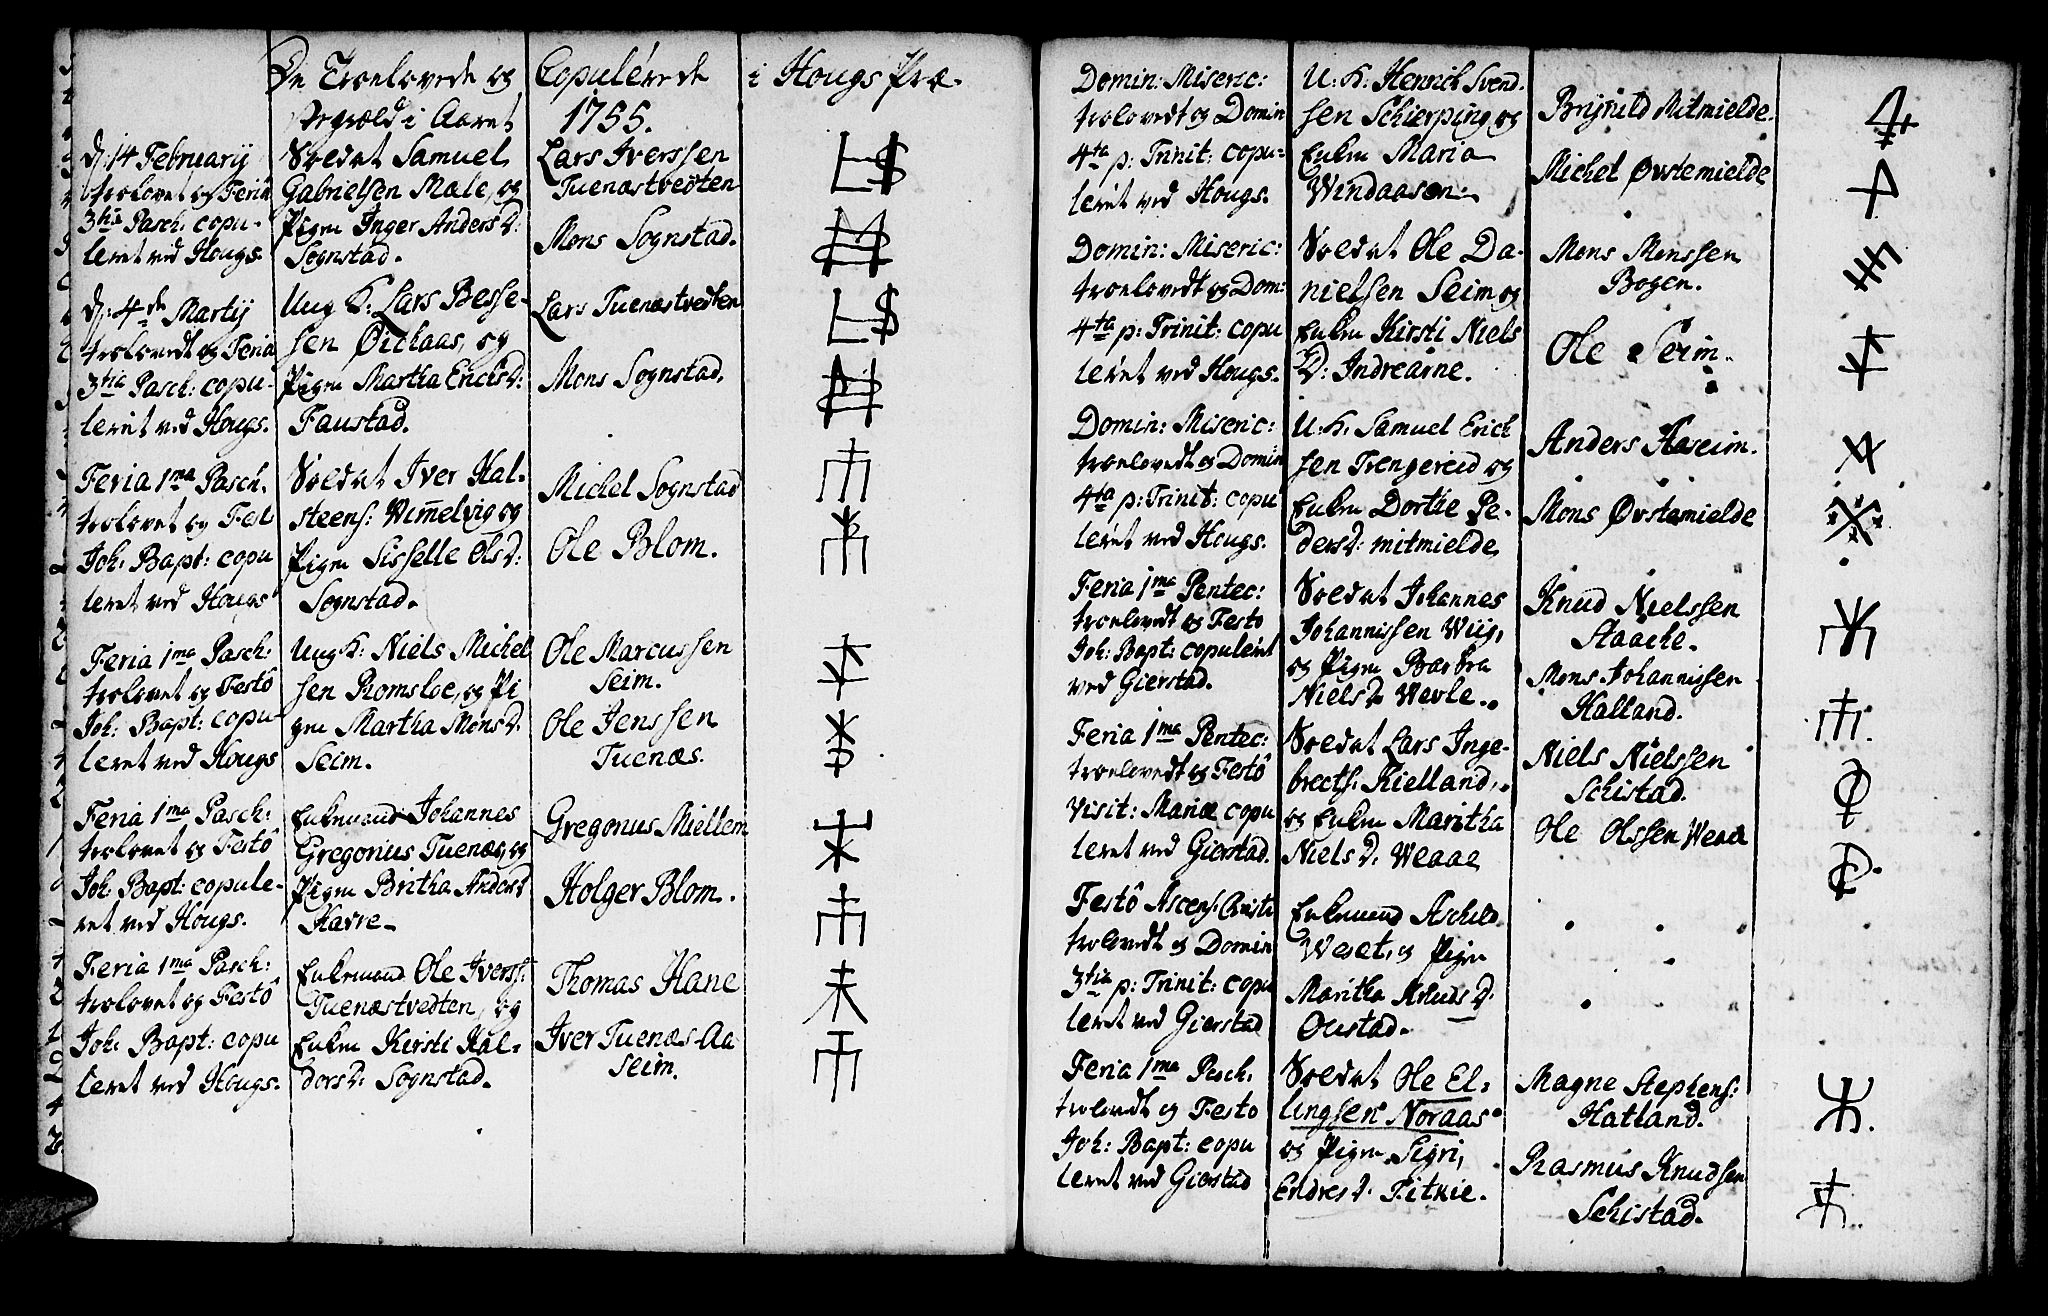 De Troelovede og Copulérede i Hougs Præ-
stegield i Aaret 1755.
d: 14 February
trolovet og Feria
3tia Pasch. copu-
leret ved Hougs.
Soldat Samuel
Gabrielsen Mæle, og
Pigen Inger Anders D:
Sognstad.
Lars Iverssen
Tuenæstvedten
Mons Sognstad.
LS
d: 4de Marty
trolovedt og Feria
3tia Pasch: copu-
leret ved Hougs.
Ung K: Lars Besse-
sen Øichaas, og
Pigen Martha Erichs D:
Faustad.
Lars Tuenæstvedten
Mons Sognstad.
LS
Feria 1ma Pasch.
trolovet og Fest
Joh. Bapt: copu
leret ved Hougs
Soldat Iver Hal-
steens: Wimelvig og
Pigen Sisselle Ols D:
Sognstad.
Michel Sognstad
Ole Blom.
Feria 1ma Pasch:
trolovet og Festô
Joh: Bapt: copu-
leret ved Hougs
Ung K: Niels Michel
sen Romsloe, og Pi
gen Martha Mons D.
Seim.
Ole Marcussen
Seim.
Ole Jenssen
Tuenæs.
Feria 1ma Pasch:
trolovet og Festô
Joh: Bapt: copule-
ret ved Hougs.
Enkemand Johannes
Gregorius Tuenæs, og
Pigen Britha Anders D
Havre-
Gregorius Miellem
Holger Blom.
Feria 1ma Pasch:
trolovet og Festô
Joh: Bapt: copu
leret ved Hougs.
Enkemand Ole Iverss:
Tuenæstvedten, og
Enken Kirsti Hal-
dors D: Sognstad.
Thomas Hane
Iver Tuenæs-Aa
seim.
Domin: Miseric:
trolovedt og Domin
4ta p: Trinit: copu-
leret ved Hougs.
U: K: Henrich Svend-
sen Schierping og
Enken Maria
Windaasen.
Brynild Mitmielde.
Michel Øvstemielde
Domin: Miseric:
troelovedt og Dom:
4ta p: Trinit: copu
leret ved Hougs.
Soldat Ole Da-
nielsen Seim og
Enken Kirsti Niels
D: Indrearne.
Mons Monssen
Bogen.
Ole Seim.
Domin: Miseric:
troelovedt og Domin
4ta p: Trinit: copu
leret ved Hougs.
U. K. Samuel Erich
sen Trengereid og
Enken Dorthe Pe-
ders D: mitmielde,
Anders Aaseim.
Mons Øvstemielde
Feria 1ma Pentec:
troelovedt og Festo
Joh: Bapt: copulerit
ved Gierstad.
Soldat Johannes
Johannissen Wiig,
og Pigen Barbra
Niels D Wevle.
Knud Nielssen
Staache.
Mons Johannissen
Halland.
Feria 1ma Pentec:
troelovedt og Festô
Visit: Mariæ copu
leret ved Gierstad.
Soldat Lars Inge-
brecths: Kielland,
og Enken Maritha
Niels D. Weaae
Niels Nielssen
Schistad.
Ole Olssen Weaae
Festô Ascens: Christi
trolovedt og Domin
3tia p: Trinit: copu
leret ved Gierstad
Enkemand Aschild
Weset, og Pigen
Maritha Knuds D:
Oustad.
Feria 1ma Pasch.
trolovedt og Festo
Joh: Bapt: copu
leret ved Gierstad
Soldat Ole El-
lingsen Noraas
og Pigen Sigri,
Endres D. Fitkie.
Magne Stephens:
Hatland.
Rasmus Knudsen
Schistad.